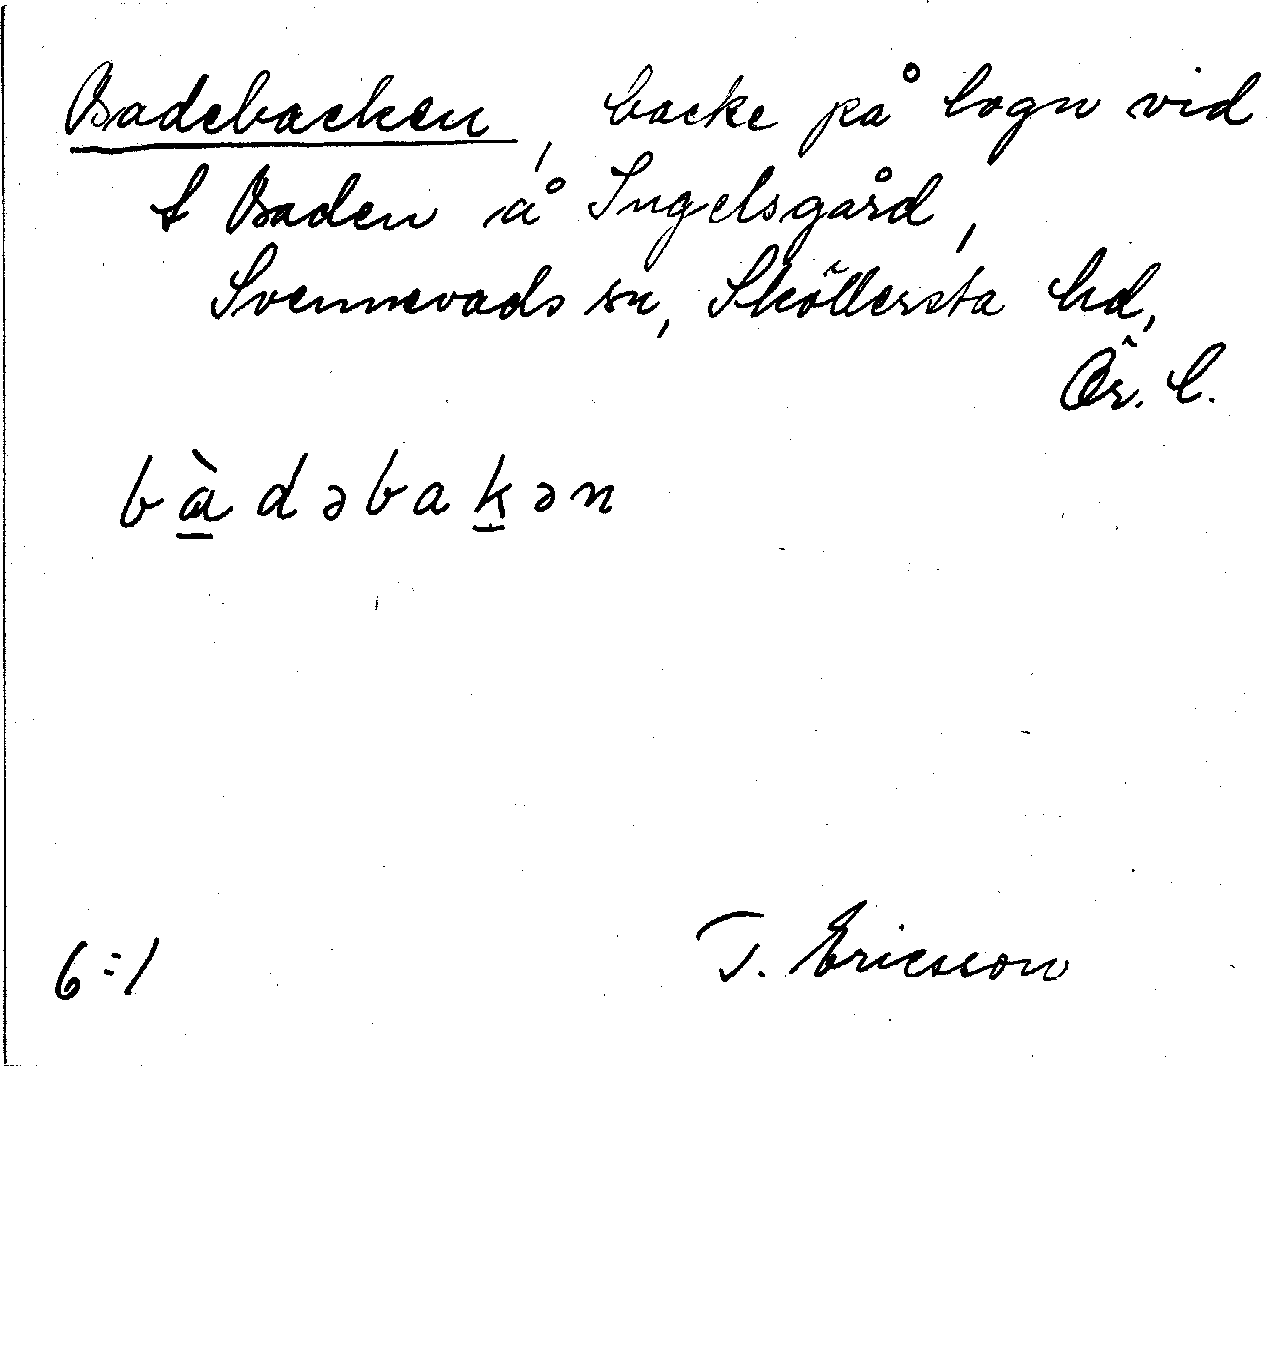 Badebacken, backe på logn vid
t Baden å Ingelsgård,
Svennevads sn, Sköllersta hd,
Ör. l.
bàdəbakən
6:1
T. Ericsson